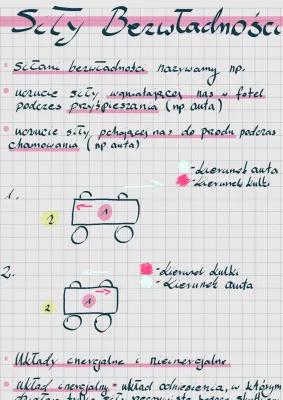 Siły Bezwładności
• siłami bezwładności nazywamy np.
• uczucie siły wgniatającej nas w fotel
podczas przyśpieszania (np auta)
• uczucie siły pchającej nas do przodu podczas
hamowania (np auta)
- kierunek auta
- kierunek kulki
1.
1
2
2.
- kierunek kulki
- kierunek auta
1
2
• Układy inercjalne i nieinercjalne
• układ inercjalny - układ odniesienia, w którym
działają tylko siły rzeczywiste będące skutkiem